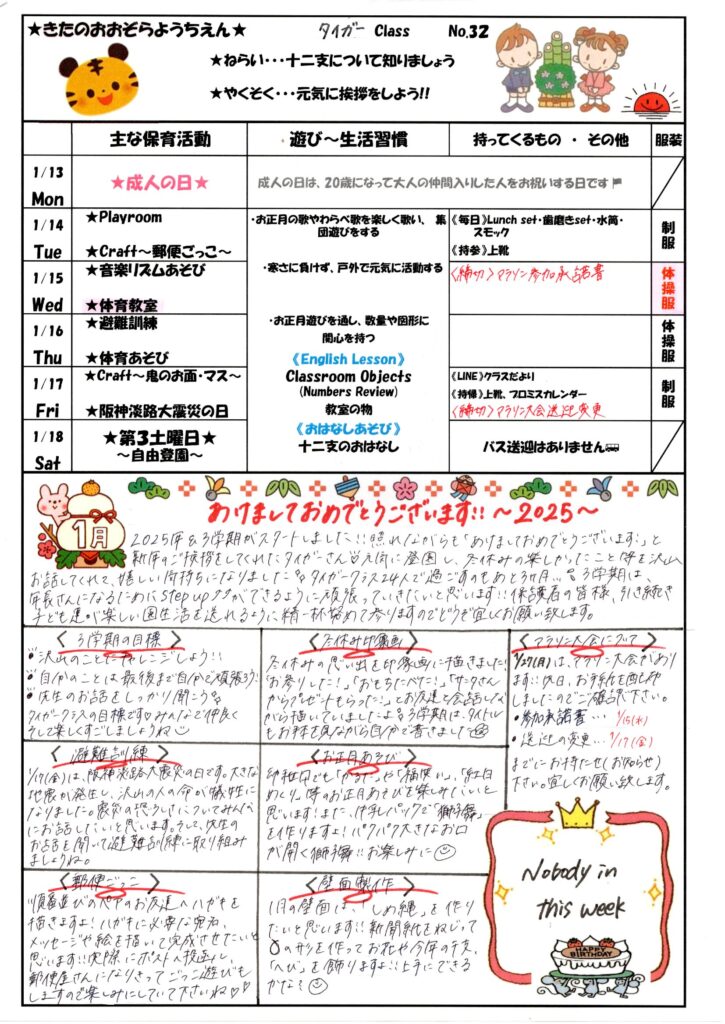 ★きたのおおぞらようちえん★
タイガー Class No.32
★ねらい・・・十二支について知りましょう
★やくそく・・・元気に挨拶をしよう!!
主な保育活動 遊び～生活習慣 持ってくるもの ・ その他 服装
1/13 Mon
★成人の日★
成人の日は、20歳になって大人の仲間入りした人をお祝いする日です
1/14 Tue
★Playroom
★Craft～郵便ごっこ～
・お正月の歌やわらべ歌を楽しく歌い、 集
団遊びをする
《毎日》Lunch set・歯磨きset・水筒・
スモック
《持参》上靴
制服
1/15 Wed
★音楽リズムあそび
★体育教室
・寒さに負けず、戸外で元気に活動する
〈締切〉マラソン参加承諾書
体操服
1/16 Thu
★避難訓練
★体育あそび
・お正月遊びを通し、数量や図形に
関心を持つ
《English Lesson》
体操服
1/17 Fri
★Craft～鬼のお面・マス～
★阪神淡路大震災の日
Classroom Objects
(Numbers Review)
教室の物
《LINE》クラスだより
《持帰》上靴、プロミスカレンダー
〈締切〉マラソン大会送迎変更
制服
1/18 Sat
★第3土曜日★
～自由登園～
《おはなしあそび》
十二支のおはなし
バス送迎はありません
1月
あけましておめでとうございます!!～2025～
2025年&3学期がスタートしました!!照れながらも「あけましておめでとうございます」と
新年のご挨拶をしてくれたタイガーさん♡元気に登園し、冬休みの楽しかったこと等を沢山
お話してくれて、嬉しい気持ちになりました。タイガークラス24人で過ごすのもあと3ヶ月…3学期は、
年長さんになるためにstep upができるように頑張っていきたいと思います!!保護者の皆様、引き続き
子ども達が楽しい園生活を送れるように精一杯努めて参りますのでどうぞ宜しくお願い致します。
〈3学期の目標〉
沢山のことにチャレンジしよう!!
自分のことは最後まで自分で頑張ろう!
先生のお話をしっかり聞こう
タイガークラスの目標です♡みんなで仲良く
そして楽しくすごしましょうね
〈冬休み印象画〉
冬休みの思い出を印象画に描きました!
「お参りした!」「おもちたべた!」「サンタさん
からプレゼントもらった!」とお友達と会話しな
がら描いていましたよ 3学期は、タイトル
もお手本を見ながら自分で書きました
〈マラソン大会について〉
1/27(月)は、マラソン大会があり
ます!!休日、お手紙を配布
しましたのでご確認下さい。
・参加承諾書… 1/15(水)
・送迎の変更… 1/17(金)
までにお持たせ(お知らせ)
下さい。宜しくお願い致します。
〈避難訓練〉
1/17(金)は、阪神淡路大震災の日です。大きな
地震が発生し、沢山の人の命が犠牲に
なりました。震災の恐ろしさについてみんな
にお話したいと思います。そして、先生の
お話を聞いて避難訓練に取り組み
ましょうね。
〈お正月あそび〉
幼稚園でも「かるた」や「福笑い」、「紅白
めくり」等のお正月あそびを楽しみたいと
思います!また、牛乳パックで「獅子舞」
を作りますよ!パクパク大きなお口
が開く獅子舞!!お楽しみに
〈郵便ごっこ〉
順番並びのペアのお友達へハガキを
描きますよ!ハガキに必要な宛名、
メッセージや絵を描いて完成させたいと
思います!!実際にポストへ投函し、
郵便屋さんになりきってごっこ遊びも
しますので楽しみにしていて下さいね♡♡
〈壁面製作〉
1月の壁面は、「しめ縄」を作り
たいと思います!!新聞紙をねじって
の形を作ってお花や今年の干支、
「へび」を飾りますよ!!上手にできる
かな?
Nobody in
this week
HAPPY
BIRTHDAY